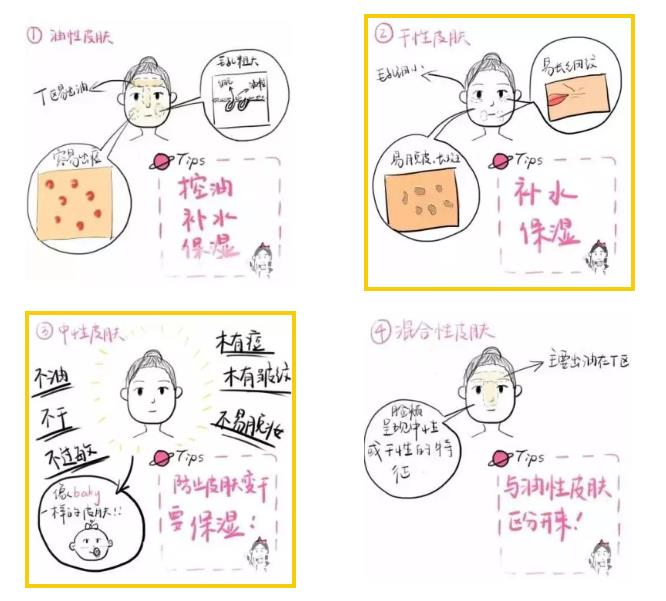 ① 油性皮肤
T区易出油
毛孔粗大
毛孔
油脂
容易出痘
Tips
控油
补水
保湿
② 干性皮肤
毛孔细小
易长细纹
易脱皮、长斑
Tips
补水
保湿
③ 中性皮肤
不油
不干
不过敏
木有痘
木有皱纹
不易脱妆
像baby
一样的皮肤!!
Tips
防止皮肤变干
要保湿!
④ 混合性皮肤
主要出油在T区
脸颊
呈现中性
或干性的特
征
Tips
与油性皮肤
区分开来!